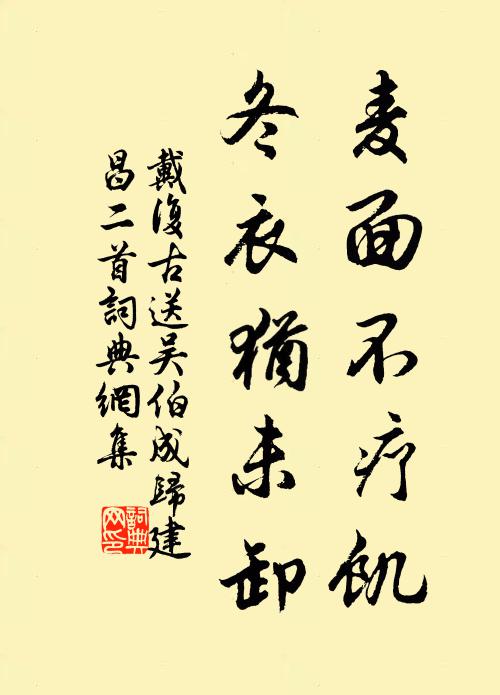 麦面不疗饥
冬衣犹未卸
戴復古送吴伯成歸建
昌二首詞典網集
詞典
网印